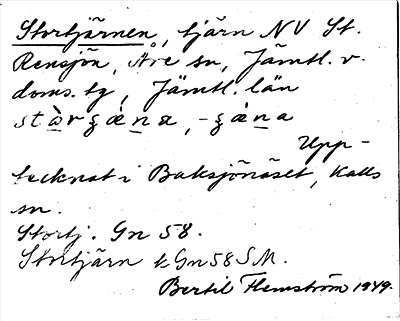 Stortjärnen, tjärn NV St.
Rensjön, Åre sn, Jämtl. v.
doms. tg, Jämtl. län
Upp-
tecknat i Baksjönäset, Kalls
sn.
Stortj. Gn 58.
Stortjärn k Gn 58 S M.
Bertil Flemström 1949.